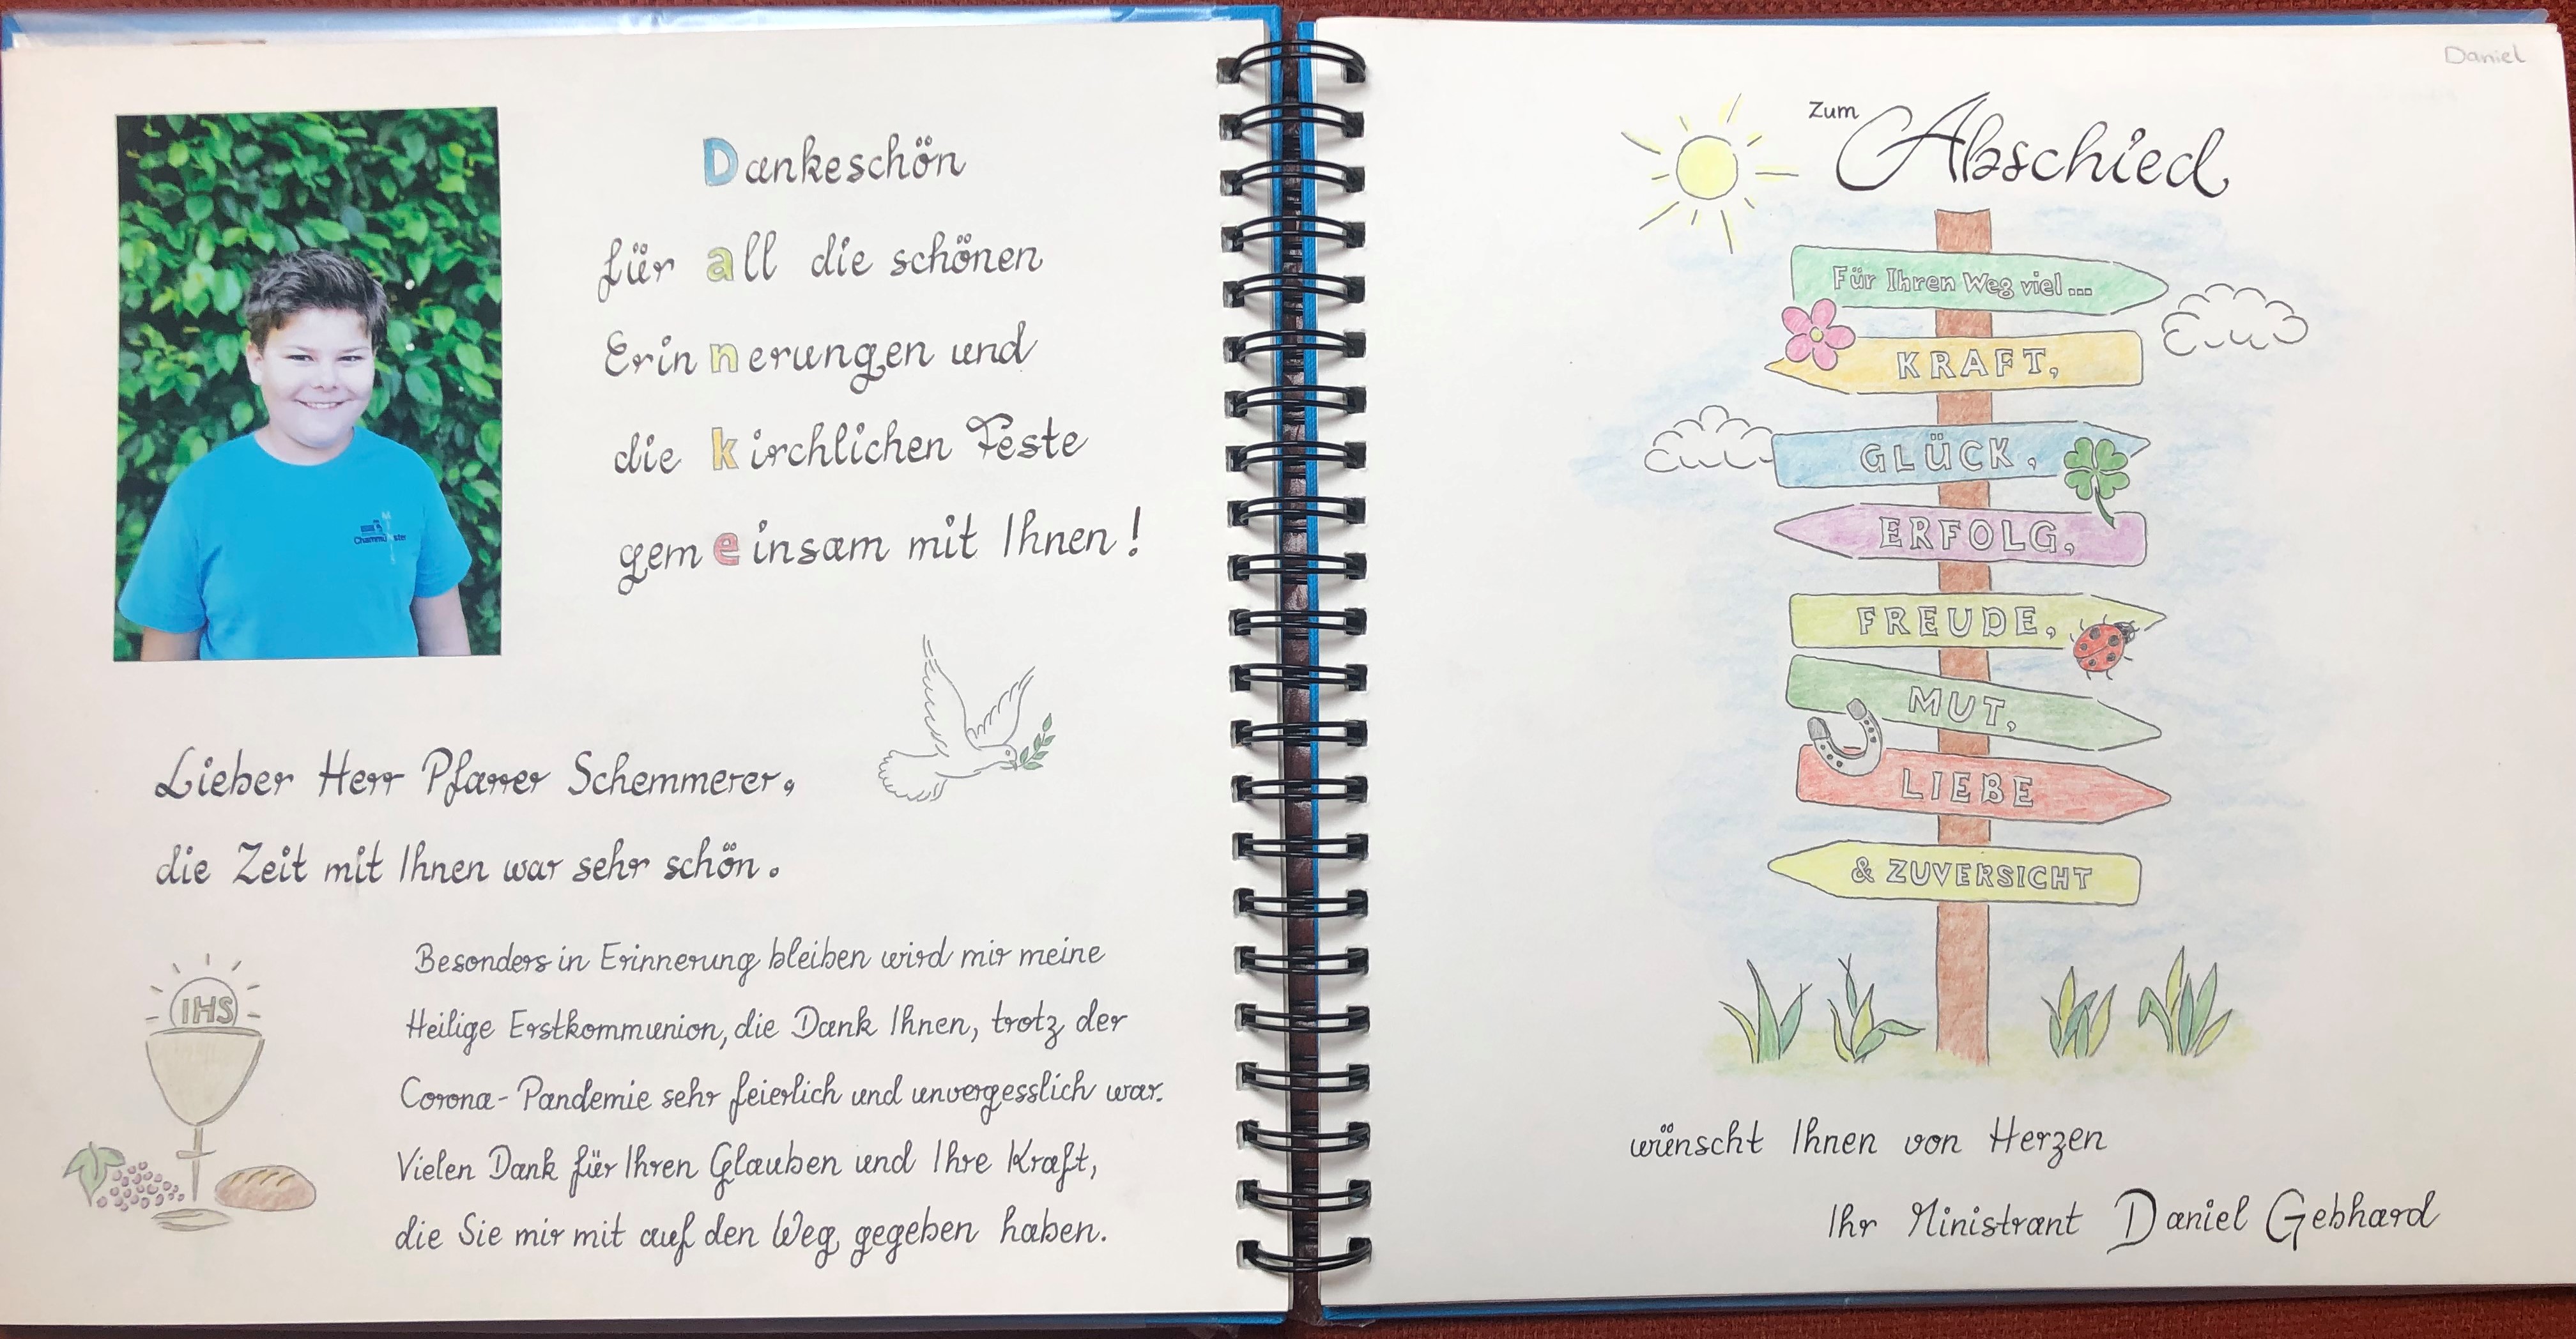 Dankeschön
für all die schönen
Erinnerungen und
die kirchlichen Feste
gemeinsam mit Ihnen!
Lieber Herr Pfarrer Schemmerer,
die Zeit mit Ihnen war sehr schön.
IHS
Besonders in Erinnerung bleiben wird mir meine
Heilige Erstkommunion, die Dank Ihnen, trotz der
Corona-Pandemie sehr feierlich und unvergesslich war.
Vielen Dank für Ihren Glauben und Ihre Kraft,
die Sie mir mit auf den Weg gegeben haben.
Daniel
Zum Abschied
Für Ihren Weg viel...
KRAFT,
GLÜCK,
ERFOLG,
FREUDE,
MUT,
LIEBE
& ZUVERSICHT
wünscht Ihnen von Herzen
Ihr Ministrant Daniel Gebhard